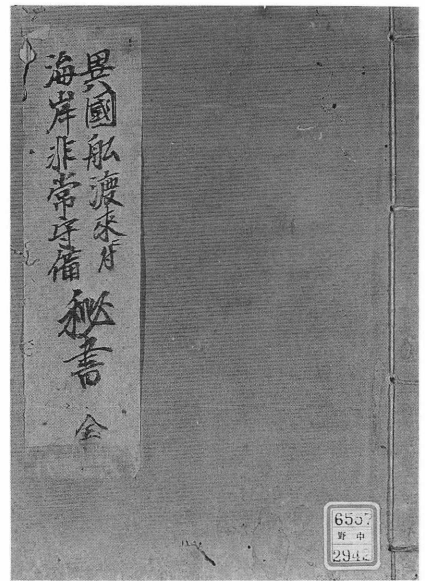 異國舩渡来ニ付
海岸非常守備
秘書 全
6557
野中
2942